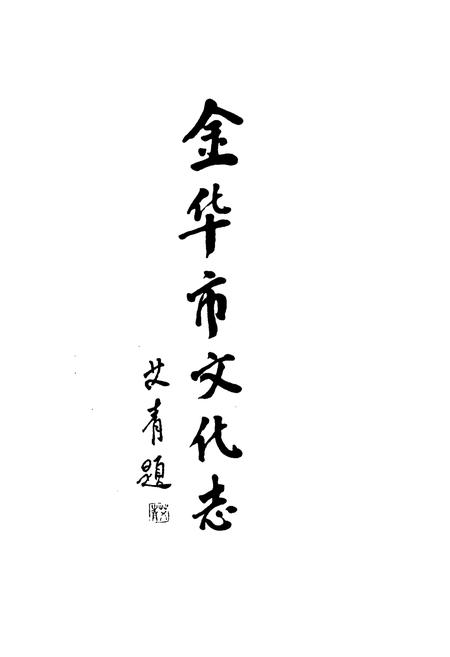 金华市文化志
艾青题